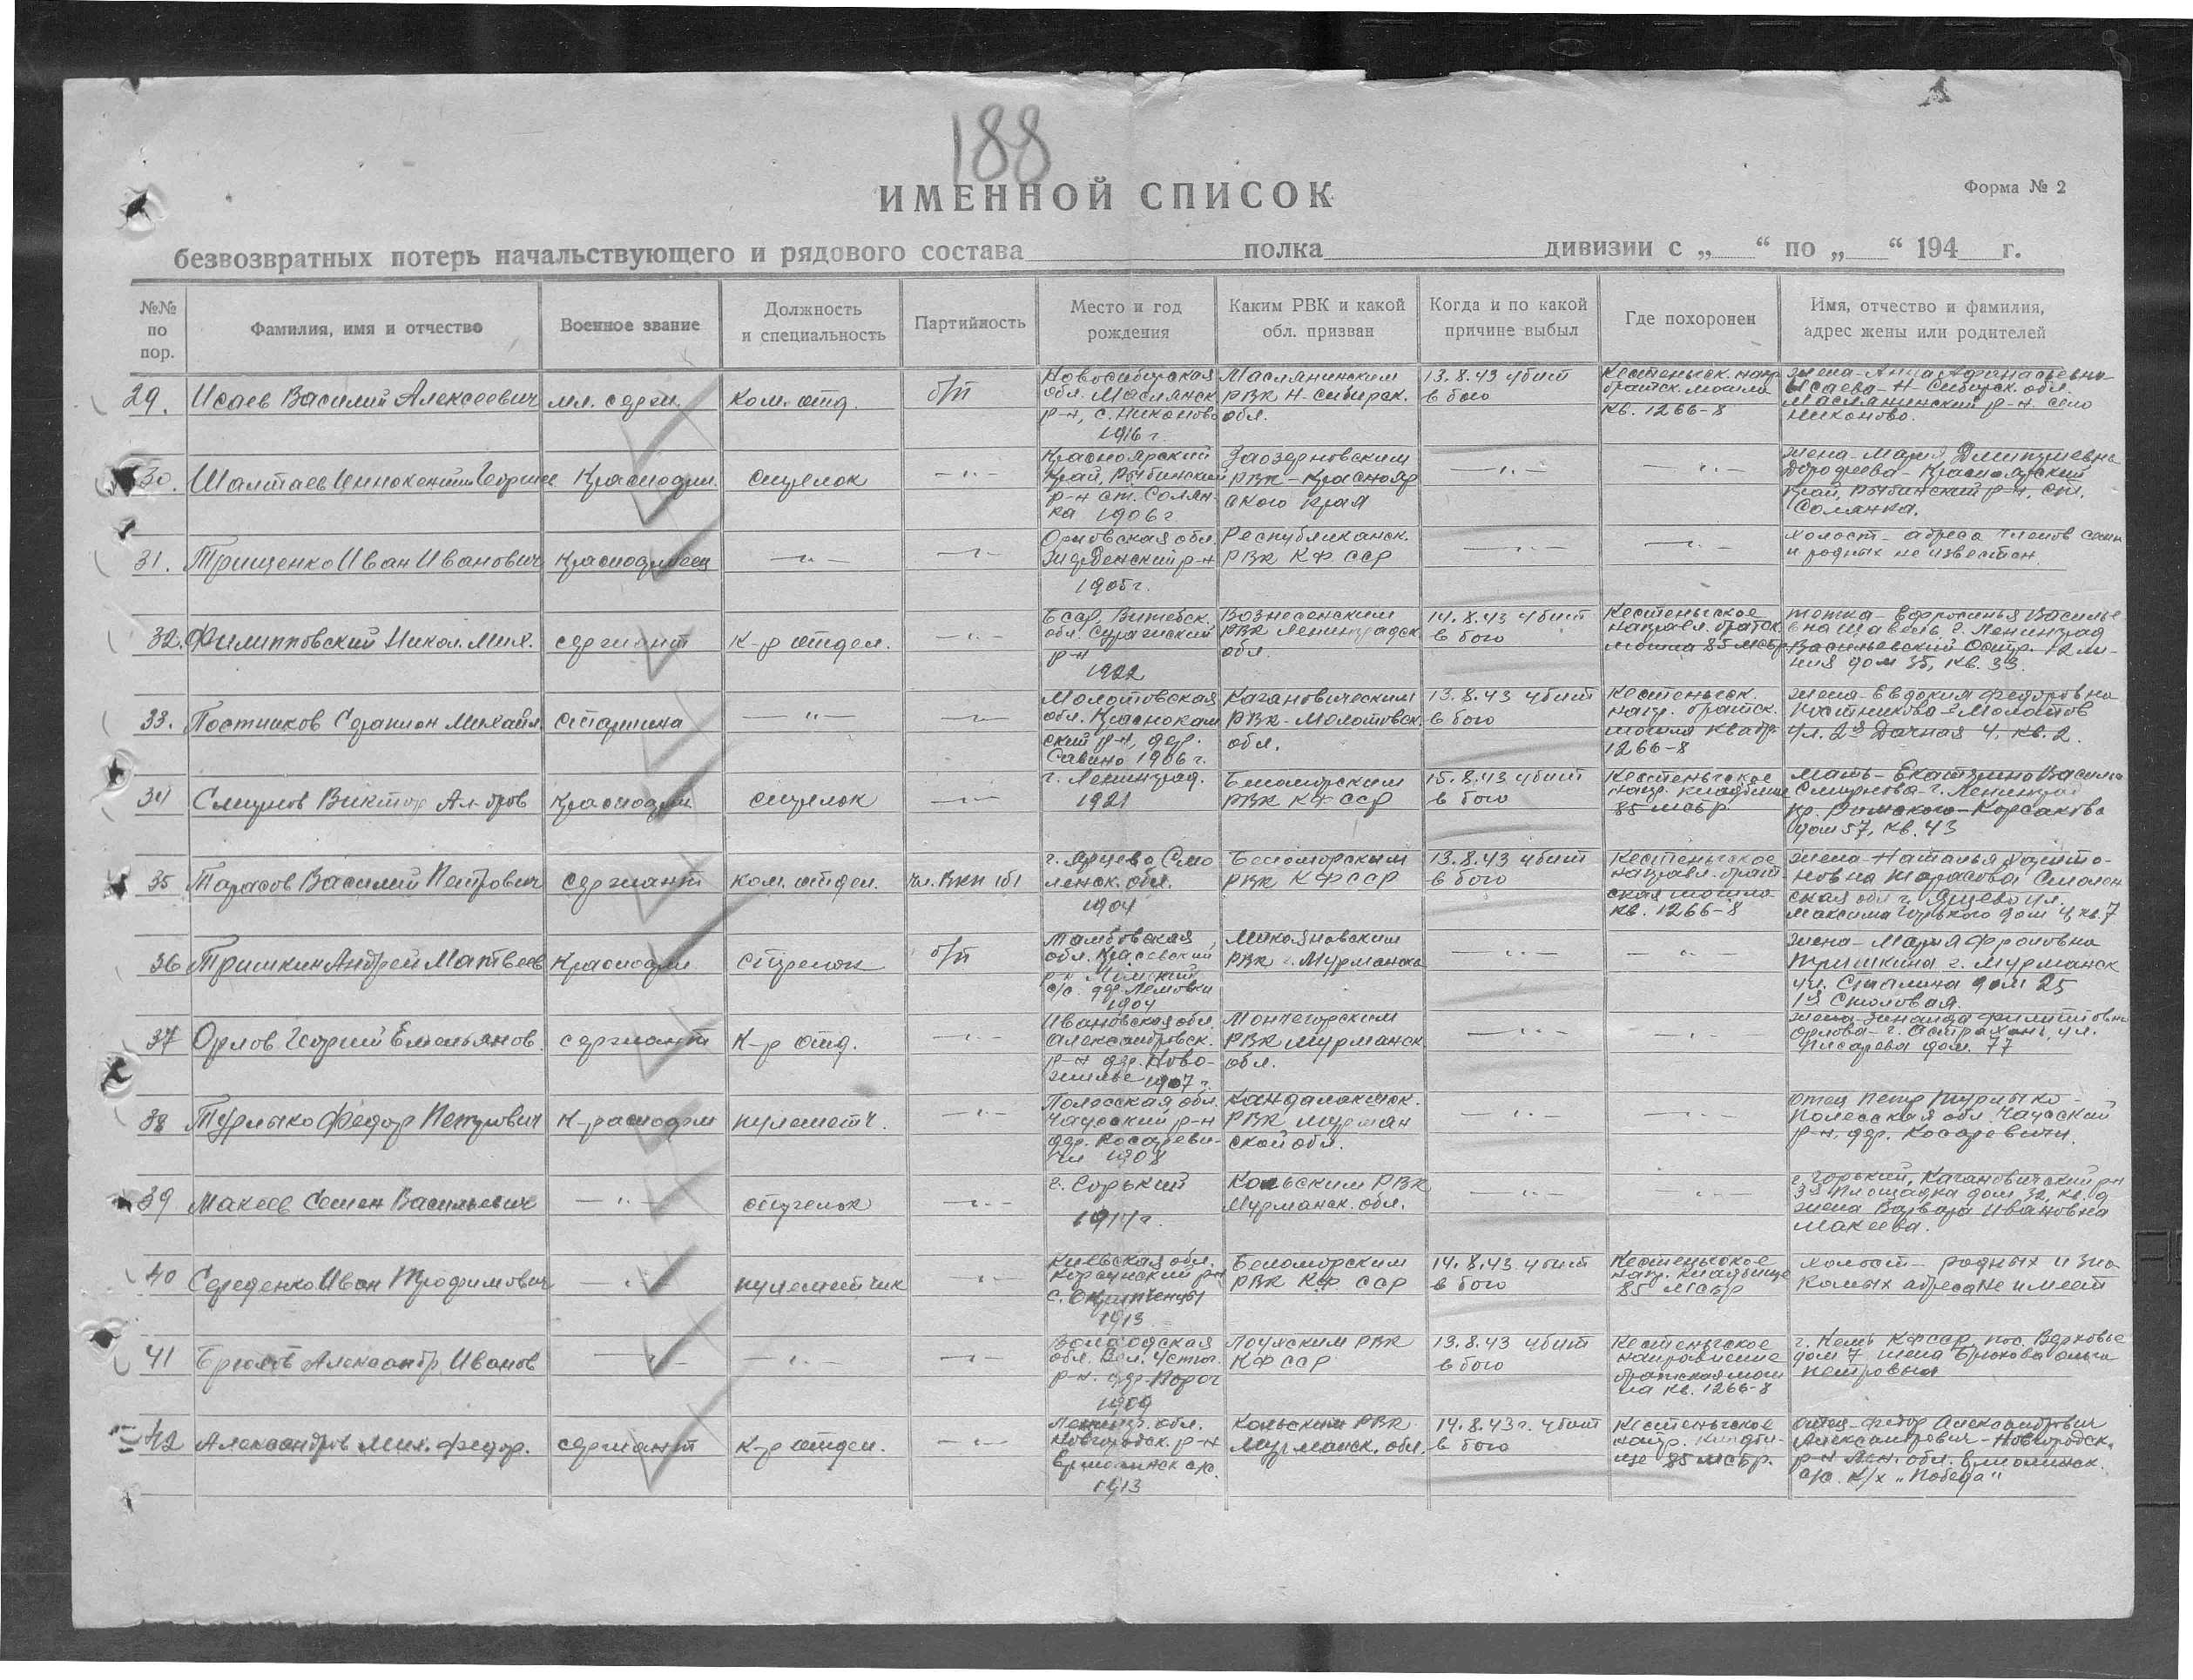 188
ИМЕННОЙ СПИСОК
Форма № 2
безвозвратных потерь начальствующего и рядового состава полка дивизии с „ “ по „ “ 194 г.
№№ по пор.
Фамилия, имя и отчество
Военное звание
Должность и специальность
Партийность
Место и год рождения
Каким РВК и какой обл. призван
Когда и по какой причине выбыл
Где похоронен
Имя, отчество и фамилия, адрес жены или родителей
29. Исаев Василий Алексеевич мл. серж. Ком. отд. б/п
Новосибирская обл. Маслянинск р-н, с. Никоново 1916 г.
Маслянинским РВК Н-Сибирск. обл.
13.8.43 убит в бою
Кестеньгск. напр. братск. могила кв. 1266-8
жена - Анна Афанасьевна Исаева - Н-Сибирск. обл. Маслянинский р-н. село Никоново.
30. Шалтаев Иннокентий Красноарм. стрелок -"-
Красноярский Край, Рыбинский р-н ст. Солянка 1906 г.
Заозерновским РВК - Красноярского края
-"- -"-
жена - Мария Дмитриевна Дорофеева - Красноярский Край, Рыбинский р-н, ст. Солянка.
31. Трищенко Иван Иванович Красноармеец -"- -"-
Орловская обл. р-н 1905 г.
Республиканск. РВК КФССР
-"- -"-
холост - адреса членов семьи и родных не известен
32. Филипповский Никол. Мих. сержант К-р отдел. -"-
БССР, Витебск. обл. Суражский р-н 1922
Вознесенским РВК Ленинградск обл.
14.8.43 убит в бою
Кестеньгское направл. братск могила 85 мсбр
тетка - Ефросинья Васильевна г. Ленинград Васильевский Остр. 12 линия дом 35, кв. 33.
33. Постников Серапион Михайл. старшина -"- -"-
Молотовская обл. Краснокамский р-н, дер. Савино 1906 г.
Кагановическим РВК - Молотовск. обл.
13.8.43 убит в бою
Кестеньгск. напр. братск. могила квадр. 1266-8
жена - Евдокия Федоровна Постникова г. Молотов ул. 2я Дачная 4. кв. 2.
34 Смирнов Виктор Ал-дров Красноарм стрелок -"-
г. Ленинград. 1921
Беломорским РВК КФССР
15.8.43 убит в бою
Кестеньгское напр. кладбище 85 мсбр
мать - Екатерина Смирнова - г. Ленинград пр. Римского-Корсакова дом 57, кв. 43
35 Тарасов Василий Петрович сержант ком. отдел. чл. ВКП(б)
г. Ярцево Смоленск. обл. 1904
Беломорским РВК КФССР
13.8.43 убит в бою
Кестеньгское направл. братская могила кв. 1266-8
жена - Наталья Тарасова Смоленская обл г. Ярцево ул. Максима Горького дом 4 кв. 7
36 Тришкин Андрей Матвеев Красноарм стрелок б/п
Тамбовская обл. р-н 1904
Микояновским РВК г. Мурманска
-"- -"-
жена - Мария Фроловна Тришкина г. Мурманск ул. Сталина дом 25 1я Столовая.
37 Орлов Георгий Емельянов. сержант К-р отд. -"-
Ивановская обл. Александровск. р-н дер. Новожилье 1907 г.
Мончегорским РВК Мурманск. обл.
-"- -"-
жена - Зинаида Филипповна Орлова - г. Астрахань, ул. Писарева дом. 77
38 Турлыко Федор Петрович К-расноарм пулеметч. -"-
Полесская обл. р-н дер. Косаревичи 1908
Кандалакшск. РВК Мурманской обл.
-"- -"-
отец Петр Турлыко - Полесская обл. р-н, дер. Косаревичи.
39 Макеев Семен Васильевич -"- стрелок -"-
г. Горький 1914 г.
Кольским РВК Мурманск. обл.
-"- -"-
г. Горький, Кагановический р-н 3я Площадка дом 32, кв. 9 жена Варвара Ивановна Макеева.
40 Середенко Иван Трофимович -"- пулеметчик -"-
Киевская обл. Корсунский р-н с. 1913
Беломорским РВК КФ ССР
14.8.43 убит в бою
Кестеньгское напр. кладбище 85 мсбр
холост - родных и знакомых адреса не имеет
41 Брюхов Александр Иванов -"- -"- -"-
Вологодская обл. Вел. Устюг. р-н. дер. 1909
Лоухским РВК КФССР
13.8.43 убит в бою
Кестеньгское направление братская могила кв. 1266-8
г. Кемь КФССР, пос. Верховье дом 7 жена Брюхова Ольга Петровна
42 Александров Мих. Федор. сержант К-р отдел. -"-
Ленингр. обл. Новгородск. р-н с/с. 1913
Кольским РВК Мурманск. обл.
14.8.43 г. убит в бою
Кестеньгское напр. кладбище 85 мсбр.
отец - Федор Александрович Александрович - Новгородск. р-н Лен. обл. с/с. к/х „Победа“